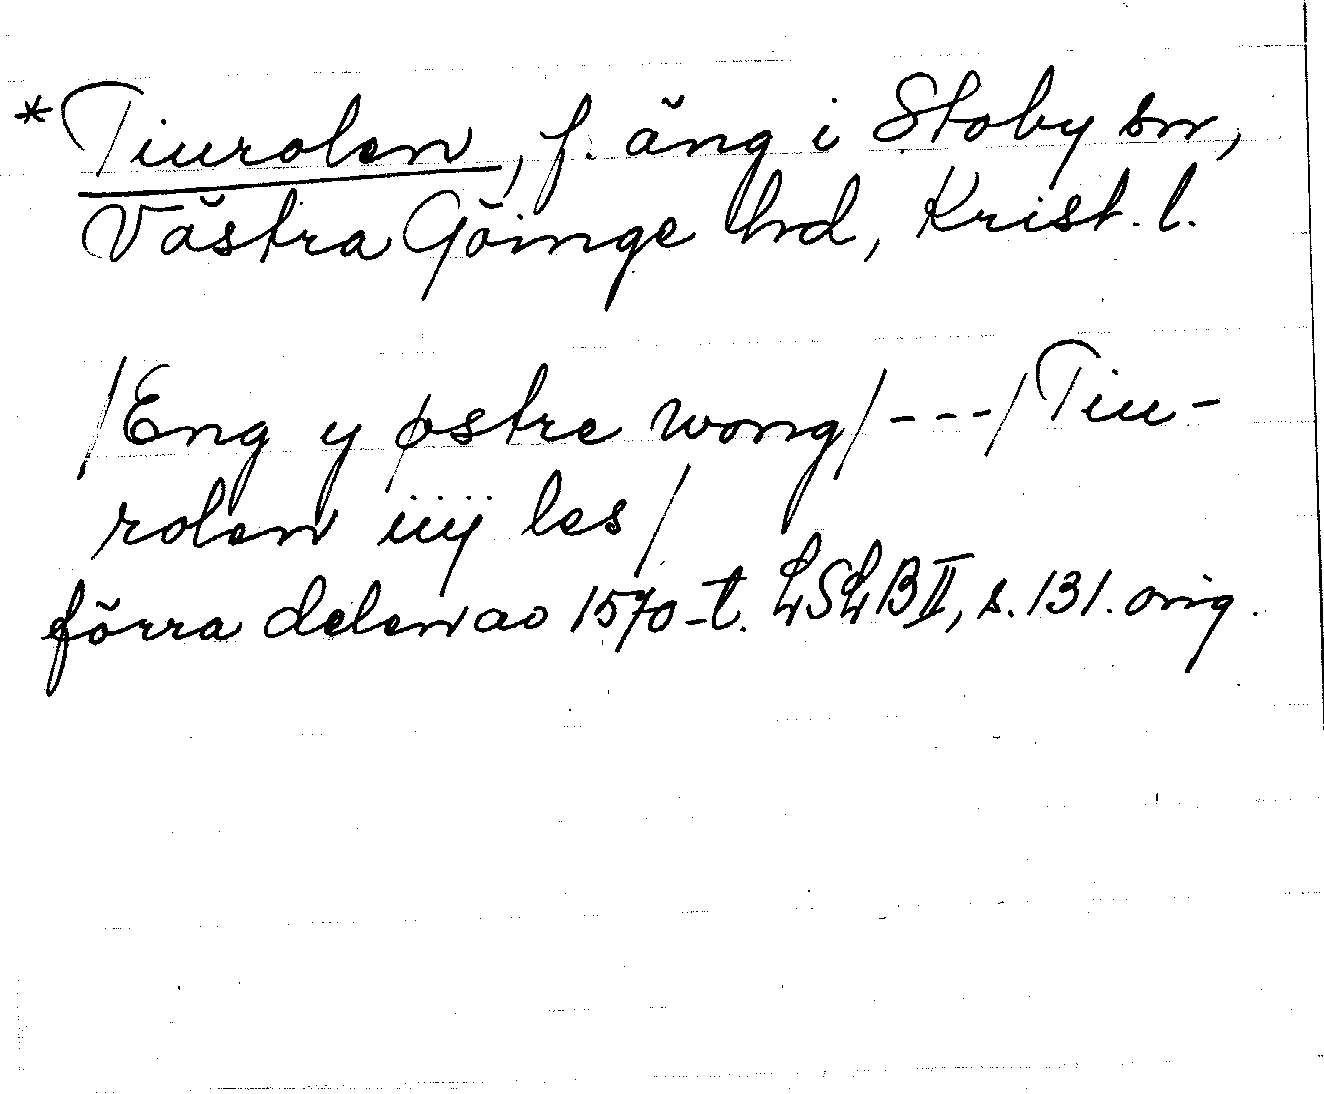 *Tiurolen, f. äng i Stoby sn,
Västra Göinge hrd, Krist. l.
/Eng y østre wong/---/Tiu-
rolen iiij les/
förra delen av 1570-t. LSLB II, s. 131. orig.